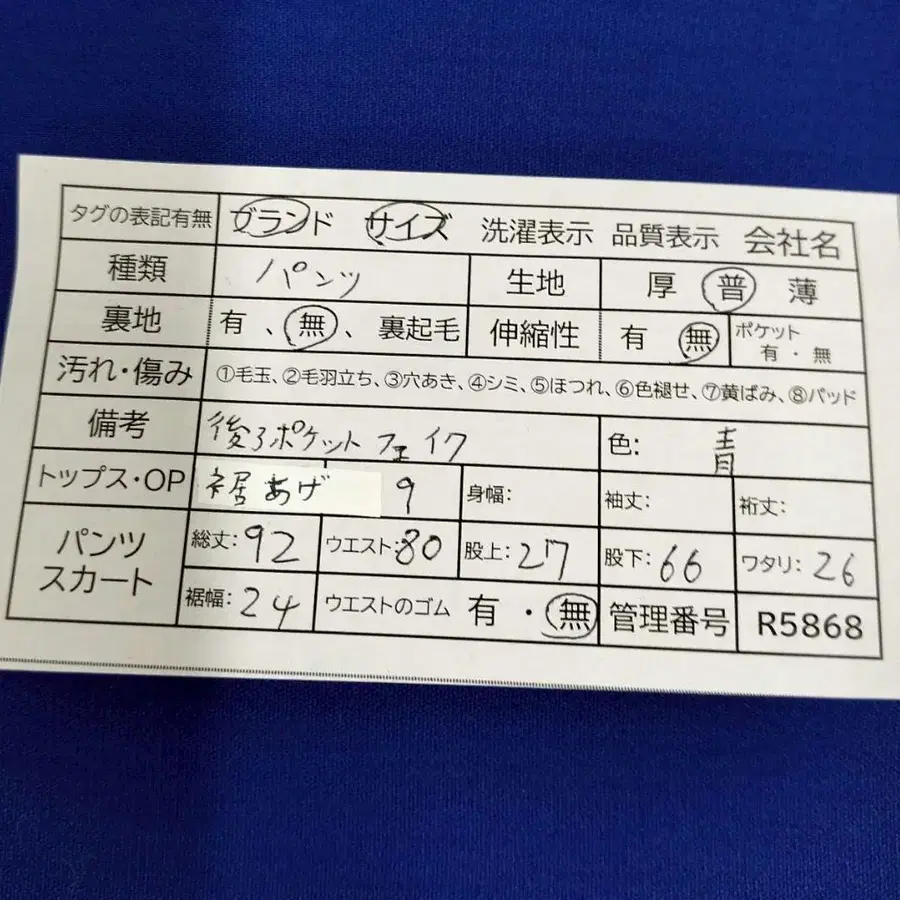 タグの表記有無 ブランド サイズ 洗濯表示 品質表示 会社名
種類 パンツ 生地 厚 普 薄
裏地 有 、 無 、 裏起毛 伸縮性 有 無 ポケット 有 ・ 無
汚れ・傷み ①毛玉、②毛羽立ち、③穴あき、④シミ、⑤ほつれ、⑥色褪せ、⑦黄ばみ、⑧パッド
備考 後ろポケット フェイク 色: 青
トップス・OP 裾あげ 9 身幅: 袖丈: 裄丈:
パンツ スカート 総丈: 92 ウエスト: 80 股上: 27 股下: 66 ワタリ: 26
裾幅: 24 ウエストのゴム 有 ・ 無 管理番号 R5868